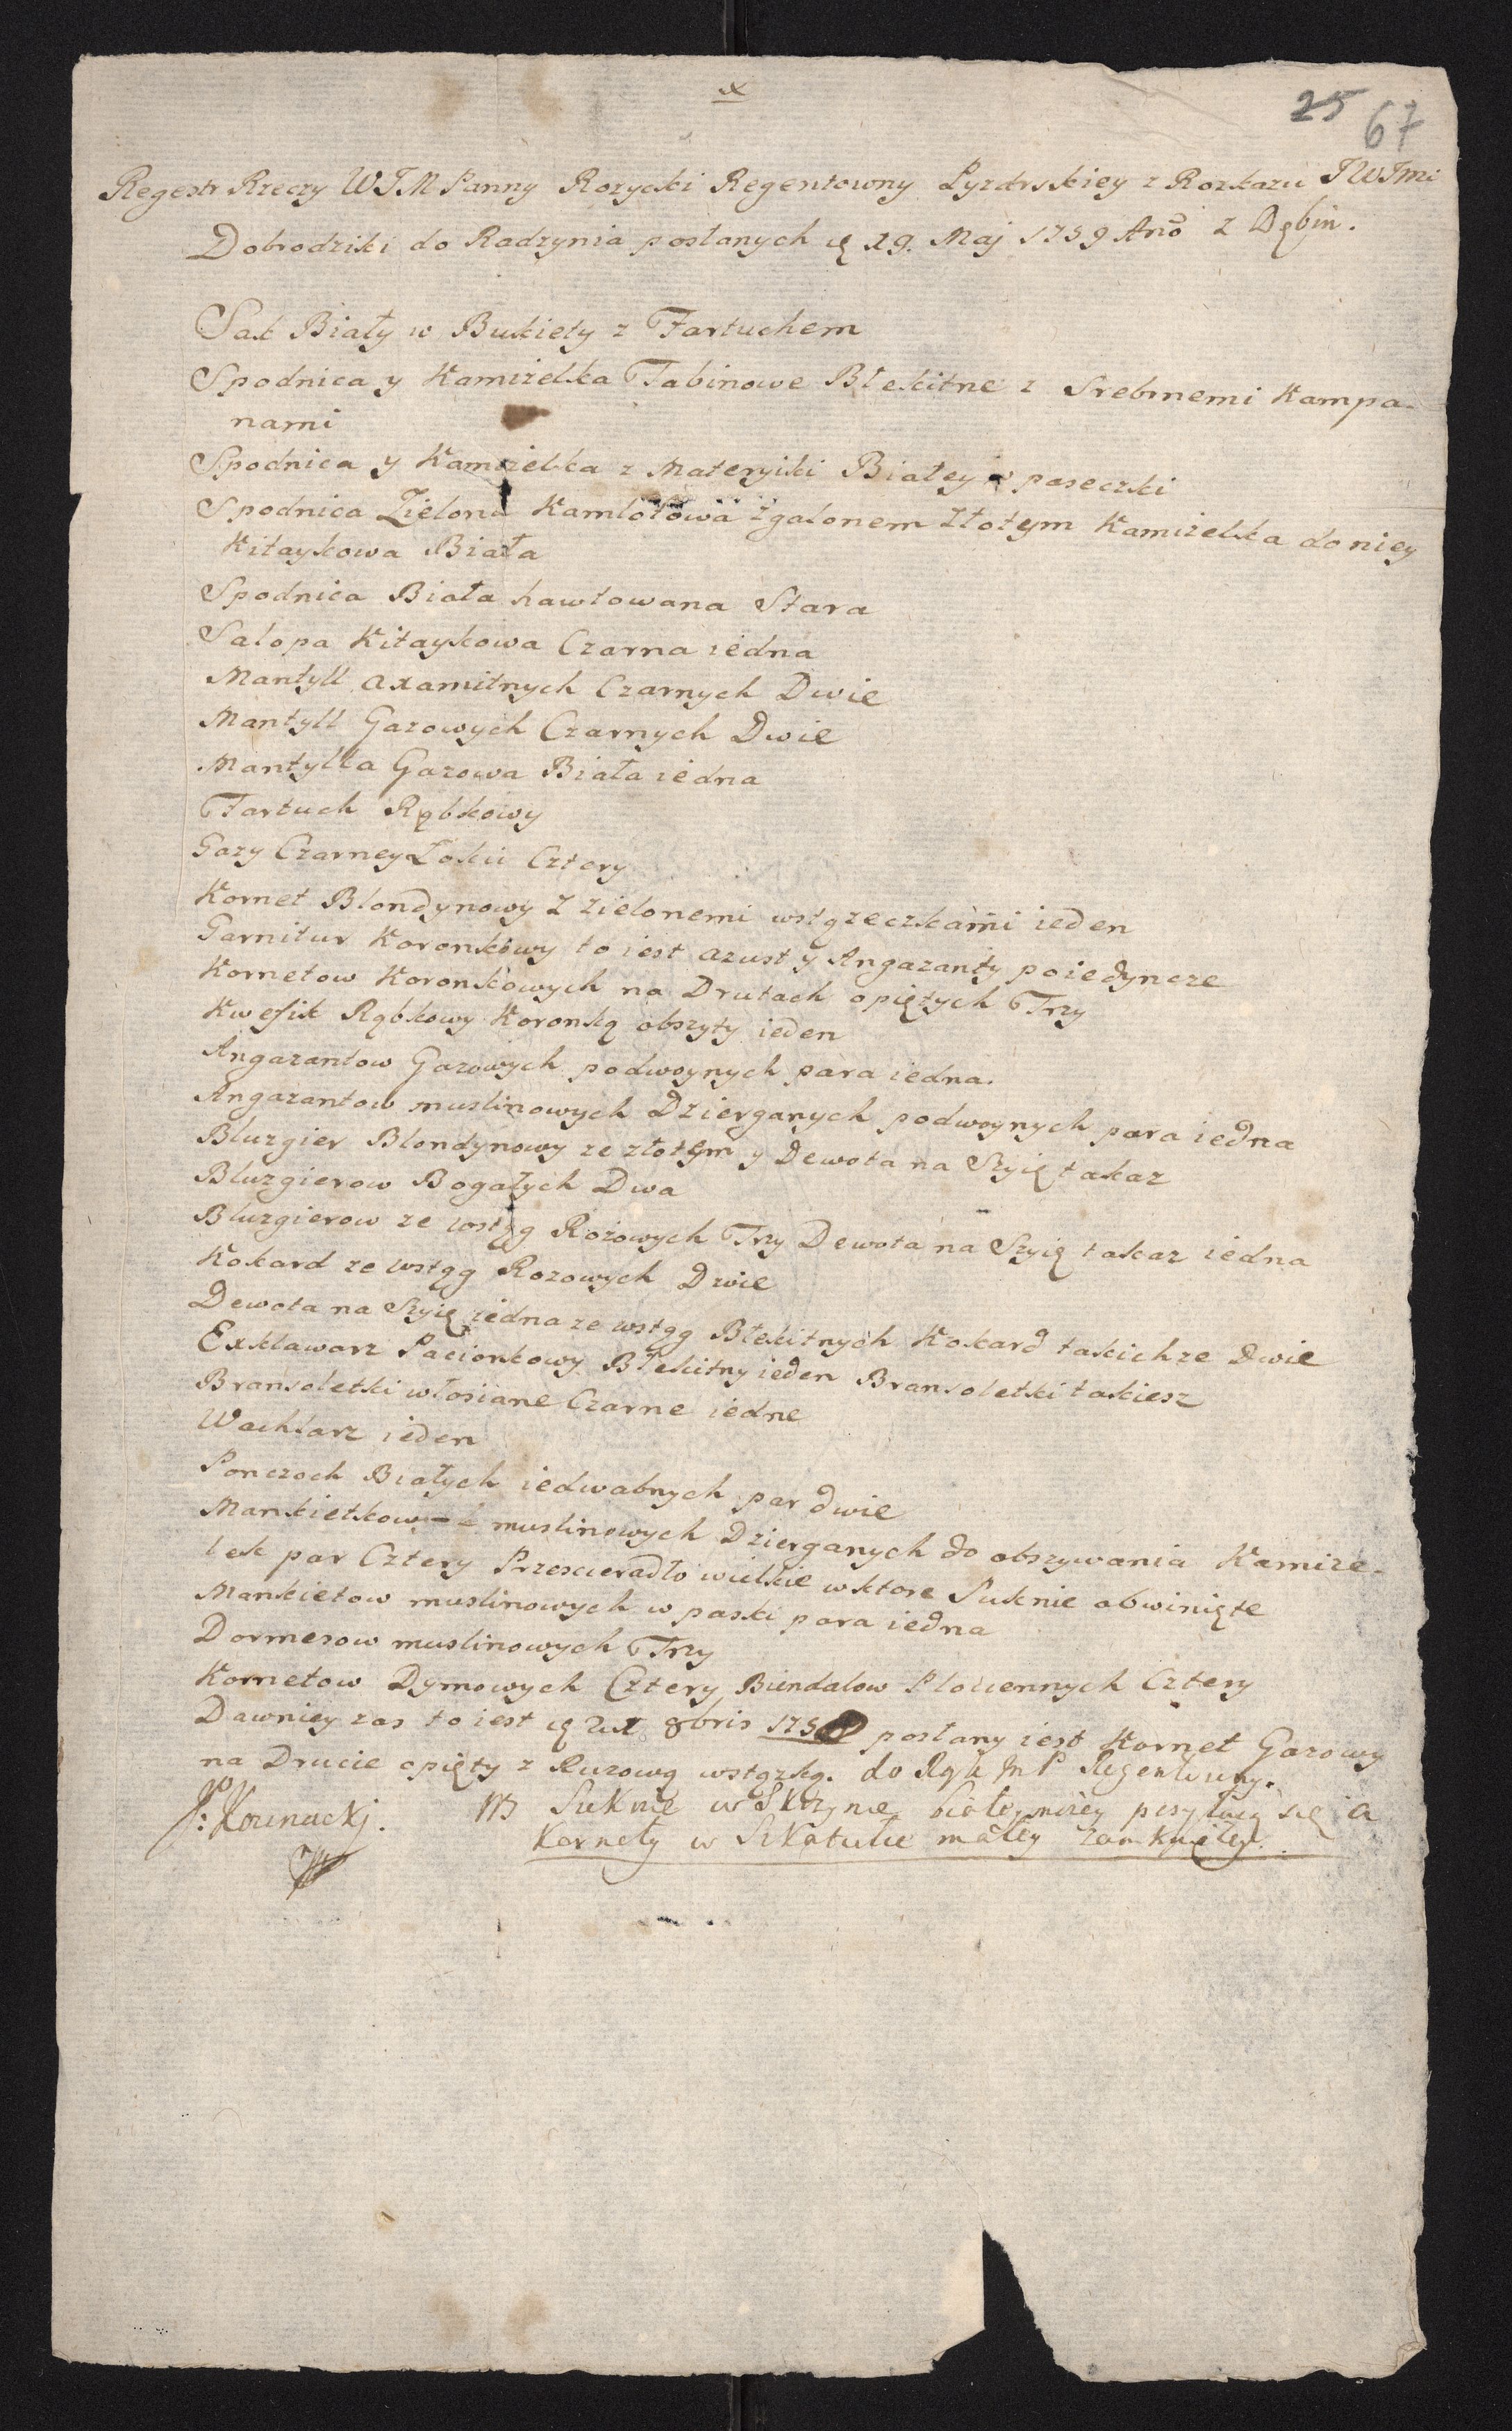 x
25 67
Regestr Rzeczy WJM Panny Rozycki Regentowny Pyzdrskiey z Rozkazu JWJmi
Dobrodziki do Radzynia posłanych 19. Maj 1759 Anō z Dębin.
Sak Biały w Bukiety z Fartuchem
Spodnica y Kamizelka Tabinowe Błekitne z Srebrnemi Kampa-
nami
Spodnica y Kamizelka z Materyiki Białey w paseczki
Spodnica Zielona Kamlotowa z galonem Złotym Kamizelka do niey
Kitaykowa Biała
Spodnica Biała hawtowana Stara
Salopa Kitaykowa Czarna iedna
Mantyll axamitnych Czarnych Dwie
Mantyll Gazowych Czarnych Dwie
Mantylla Gazowa Biała iedna
Fartuch Rąbkowy
Gazy Czarney Łokci Cztery
Kornet Blondynowy z zielonemi wstązeczkami ieden
Garnitur Koronkowy to iest azust y Angazanty poiedyncze
Kornetow Koronkowych na Drutach opiętych Trzy
Kwefik Rąbkowy Koronką obszyty ieden
Angazantow Gazowych podwoynych para iedna.
Angazantow muslinowych Dzierganych podwoynych para iedna
Bluzgier Blondynowy ze złotym y Dewota na Szyię takaz
Bluzgierow Bogatych Dwa
Bluzgierow ze wstąg Rożowych Trzy Dewota na Szyię takaz iedna
Kokard ze wstąg Rozowych Dwie
Dewota na Szyię iedna ze wstąg Błekitnych Kokard takichze Dwie
Exklawarz Paciorkowy Błekitny ieden Bransoletki takiesz
Bransoletki włosiane Czarne iedne
Wachlarz ieden
Ponczoch Białych iedwabnych par dwie
Mankietkow muslinowych Dzierganych do obszywania Kamize-
lek par Cztery Przescieradło wielkie w ktore Suknie obwinięte
Mankietow muslinowych w paski para iedna
Dormezow muslinowych Trzy
Kornetow Dymowych Cztery Bindalow Płociennych Cztery
Dawniey zas to iest 8bris 175 posłany iest Kornet Gazowy
na Drucie opięty z Ruzową wstązką. do Rąk Regentowny.
NB Suknie w Skrzynie białey posyłaią się a
Kornety w Szkatule małey zamkniętey.